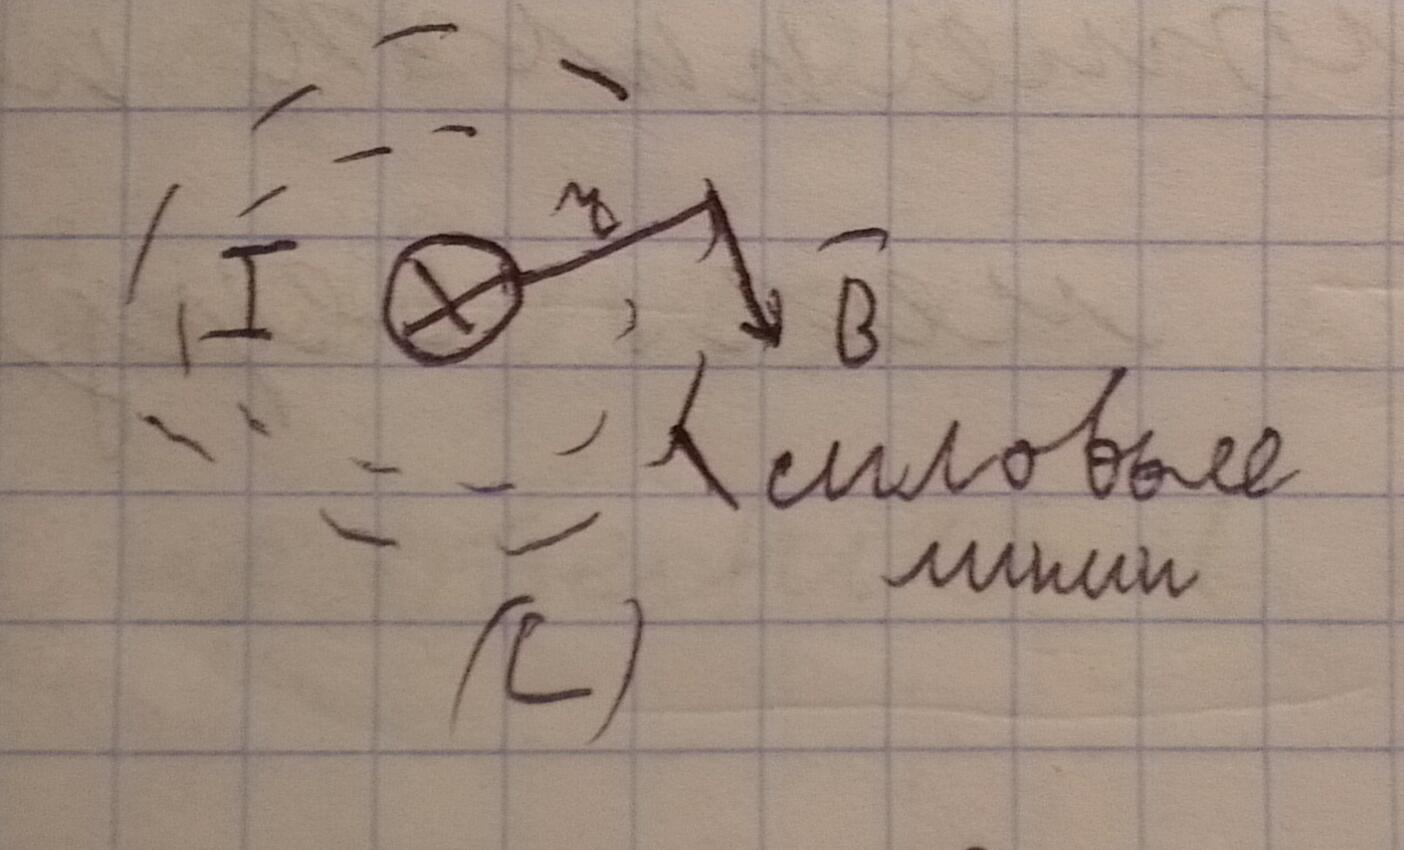 r
I
B
силовые
линии
(L)